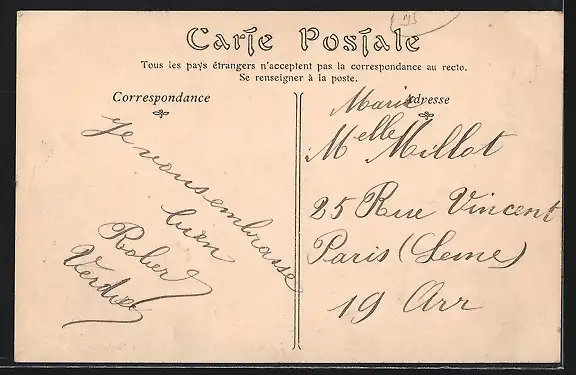 95
Carte Postale
Tous les pays étrangers n'acceptent pas la correspondance au recto.
Se renseigner à la poste.
Correspondance
Adresse
Je vous embrasse
bien
Robert
Marie
Melle Millot
25 Rue Vincent
Paris (Seine)
19 Arr